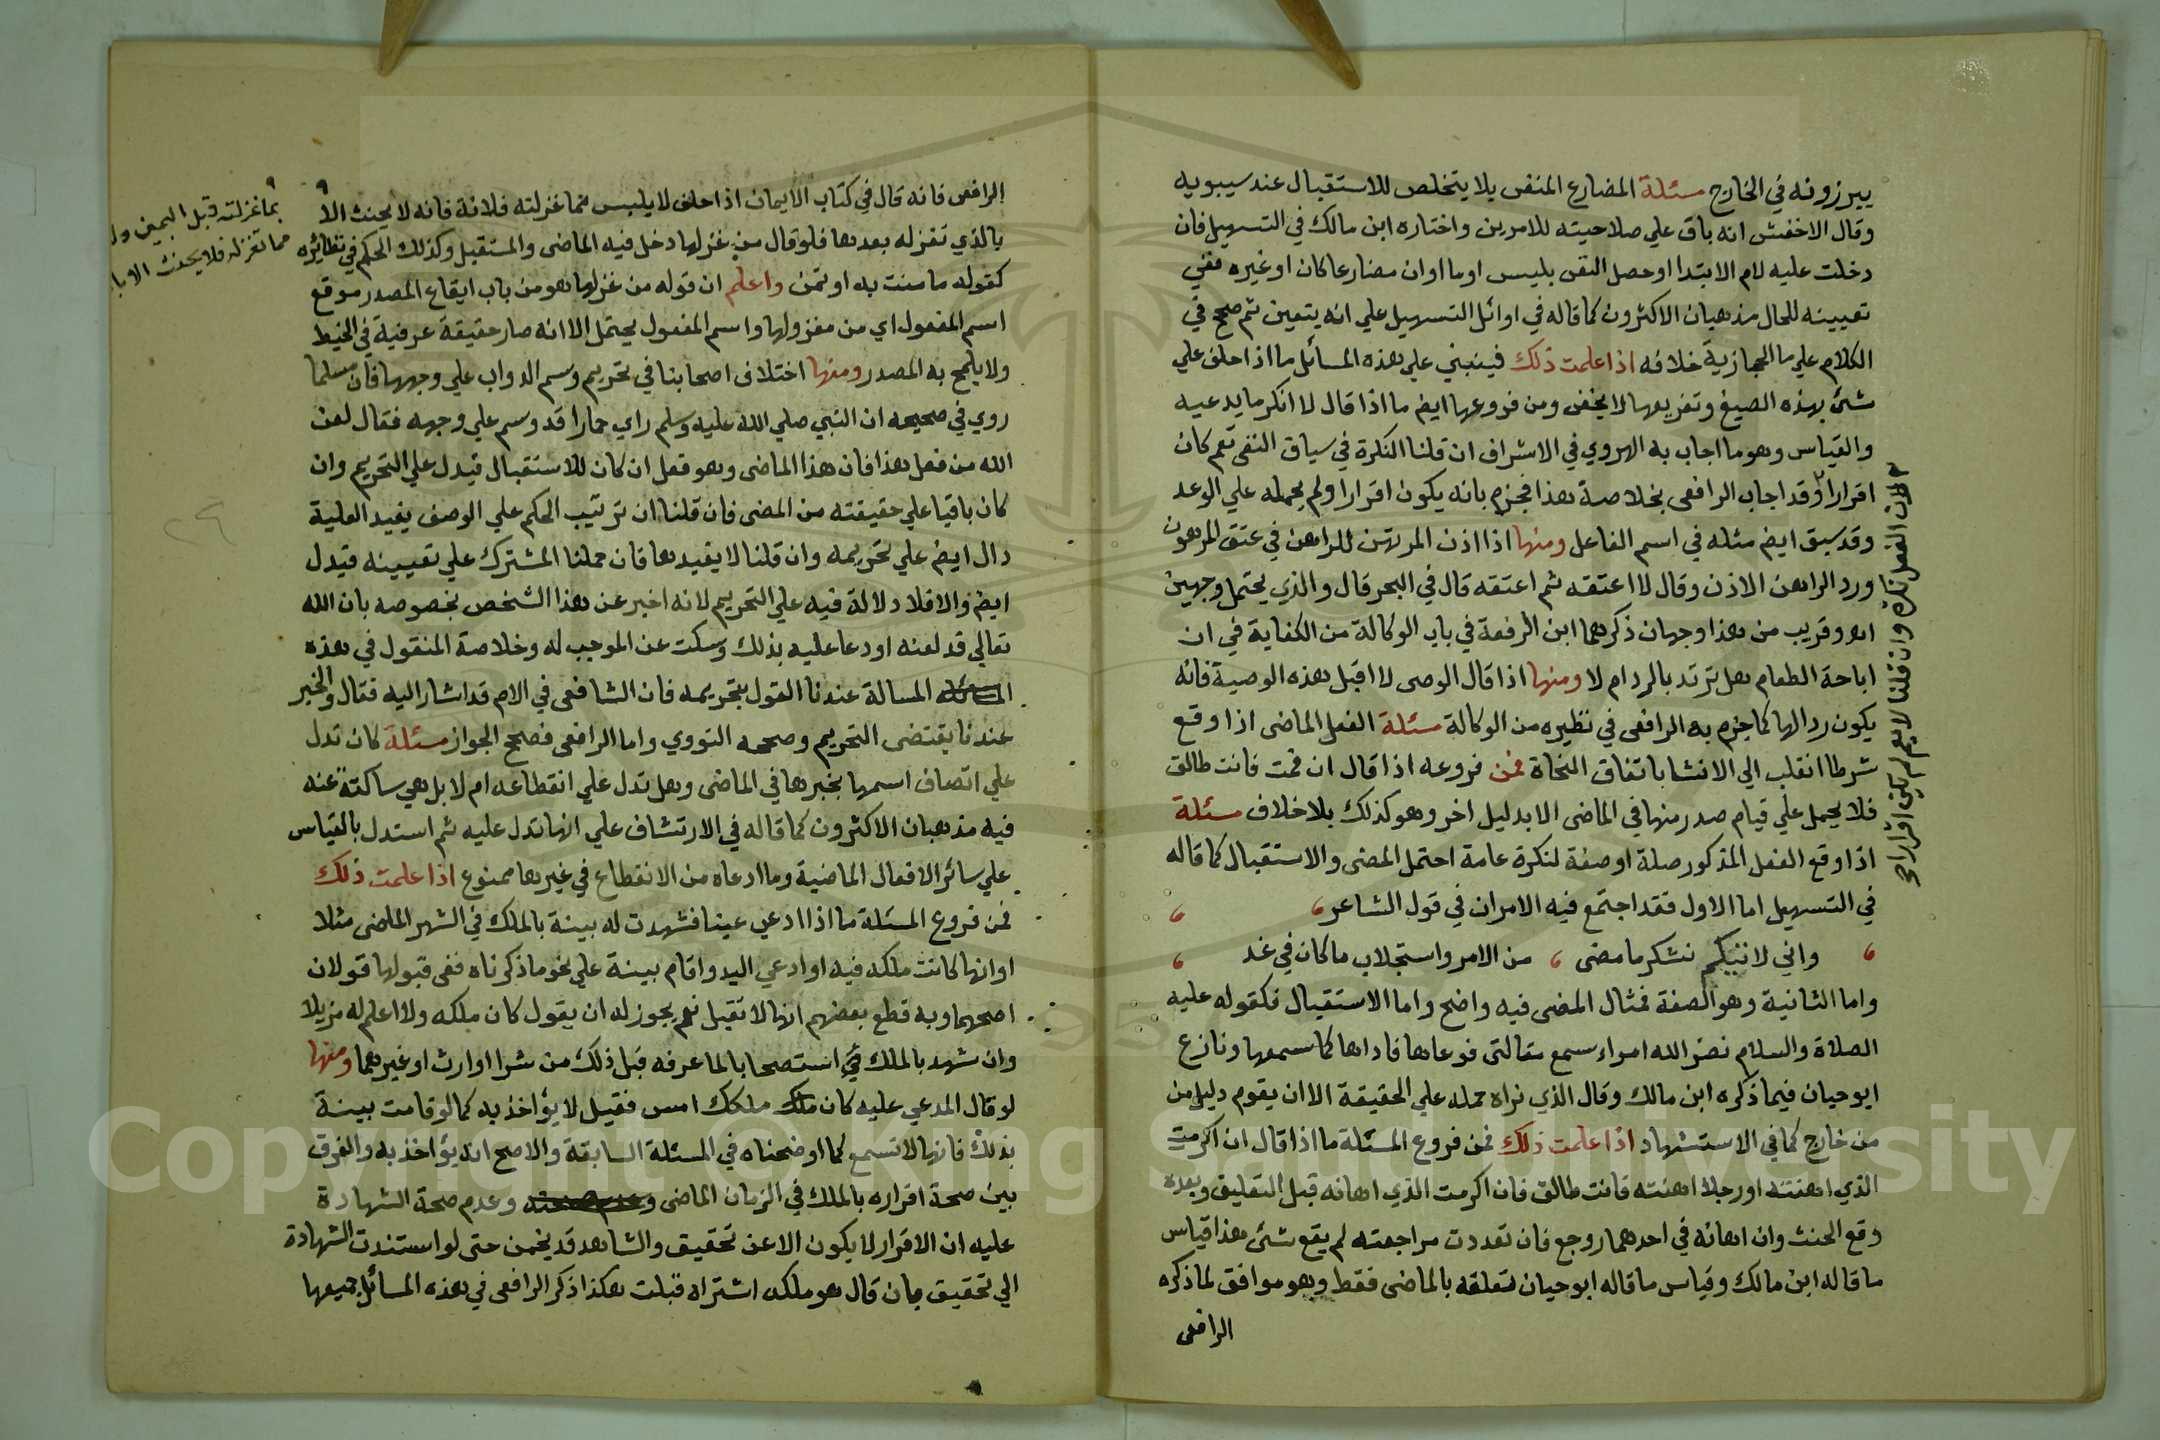 يبرزونه في الخارج مسئلة المضارع المنفى بلا يتخلص للاستقبال عند سيبويه
وقال الاخفش انه باق علي صلاحيته للامرين واختاره ابن مالك في التسهيل فان
دخلت عليه لام الابتدا او حصل النفى بليس او ما او ان مضارعا كان او غيره ففي
تعيينه للحال مذهبان الاكثرون كما قاله في اوائل التسهيل علي انه يتعين ثم صحح في
الكلام علي ما الحجازية خلافه اذا علمت ذلك فينبني علي هذه المسائل ما اذا حلف علي
شئ بهذه الصيغ وتفريعها لا يخفى ومن فروعها ايضا ما اذا قال لا انكر ما يدعيه
والقياس وهو ما اجاب به الهروي في الاشراف ان قلنا النكرة في سياق النفى تعم كان
اقرارا وقد اجاب الرافعى بخلاصة هذا فجزم بانه يكون اقرارا ولم يحمله علي الوعد
وقد سبق ايضا مثله في اسم الفاعل ومنها اذا اذن المرتهن للراهن في عتق المرهون
ورد الراهن الاذن وقال لا اعتقه ثم اعتقه قال في البحر قال والذي يحتمل وجهين
اه وقريب من هذا وجهان ذكرهما ابن الرفعة في باب الوكالة من الكفاية في ان
اباحة الطعام هل ترتد بالرد ام لا ومنها اذا قال الوصى لا اقبل هذه الوصية فانه
يكون رد الها كما جزم به الرافعى في نظيره من الوكالة مسئلة الفعل الماضى اذا وقع
شرطا انقلب الي الانشا باتفاق النحاة فمن فروعه اذا قال ان قمت فانت طالق
فلا يحمل علي قيام صدر منها في الماضى الا بدليل اخر وهو كذلك بلا خلاف مسئلة
اذا وقع الفعل المذكور صلة او صفة لنكرة عامة احتمل المضى والاستقبال كما قاله
في التسهيل اما الاول فقد اجتمع فيه الامران في قول الشاعر
واني لاتيكم نشكر ما مضى من الامر واستجلاب ما كان في غد
واما الثانية وهو الصفة فمثال المضى فيه واضح واما الاستقبال فكقوله عليه
الصلاة والسلام نضر الله امراء سمع مقالتى فوعاها فاداها كما سمعها ونازع
ابو حيان فيما ذكره ابن مالك وقال الذي نراه حمله علي الحقيقة الا ان يقوم دليل من
من خارج كما في الاستشهاد اذا علمت ذلك فمن فروع المسئلة ما اذا قال ان اكرمت
الذي اهنته او رجلا اهنته فانت طالق فان اكرمت الذي اهانه قبل التعليق وبعده
وقع الحنث وان اهانه في احدهما روجع فان تعددت مراجعته لم يقع شئ هذا قياس
ما قاله ابن مالك وقياس ما قاله ابو حيان تعلقه بالماضى فقط وهو موافق لما ذكره
الرافعى
لان الفعل نكرة وان قلنا لا يعم لم يكن اقرارا صح
الرافعى فانه قال في كتاب الايمان اذا حلف لا يلبس مما غزلته فلانة فانه لا يحنث الا
بما غزلته قبل اليمين
مما تغزله فلا يحنث الا
بالذي تغزله بعدها فلو قال من غزلها دخل فيه الماضى والمستقبل وكذلك الحكم في نظائره
كقوله ما منت به او تمن واعلم ان قوله من غزلها هو من باب ايقاع المصدر موقع
اسم المفعول اي من مغزولها واسم المفعول يحتمل الا انه صار حقيقة عرفية في الخيط
ولا يلمح به المصدر ومنها اختلاف اصحابنا في تحريم وسم الدواب علي وجهها فان مسلما
روي في صحيحه ان النبي صلي الله عليه وسلم راي حمارا قد وسم علي وجهه فقال لعن
الله من فعل هذا فان هذا الماضى وهو فعل ان كان للاستقبال فيدل علي التحريم وان
كان باقيا علي حقيقته من المضى فان قلنا ان ترتيب الحكم علي الوصف يفيد العلية
دال ايضا علي تحريمه وان قلنا لا يفيدها فان حملنا المشترك علي تعيينه فيدل
ايضا والا فلا دلالة فيه علي التحريم لانه اخبر عن هذا الشخص بخصوصه بان الله
تعالي قد لعنه او دعا عليه بذلك وسكت عن الموجب له وخلاصة المنقول في هذه
المسالة عندنا القول بتحريمه فان الشافعى في الام قد اشار اليه فقال والخبر
عندنا يقتضى التحريم وصححه النووي واما الرافعى فصحح الجواز مسئلة كان تدل
علي اتصاف اسمها بخبرها في الماضى وهل تدل علي انقطاعه ام لا بل هي ساكتة عنه
فيه مذهبان الاكثرون كما قاله في الارتشاف علي انها تدل عليه ثم استدل بالقياس
علي سائر الافعال الماضية وما ادعاه من الانقطاع في غيرها ممنوع اذا علمت ذلك
فمن فروع المسئلة ما اذا ادعي عينا فشهدت له بينة بالملك في الشهر الماضى مثلا
او انها كانت ملكه فيه او ادعي اليد واقام بينة علي نحو ما ذكرناه ففى قبولها قولان
اصحهما وبه قطع بعضهم انها لا تقبل نعم يجوز له ان يقول كان ملكه ولا اعلم له مزيلا
وان شهد بالملك في استصحابا لما عرفه قبل ذلك من شرا او ارث او غيرهما ومنها
لو قال المدعي عليه كان ملك ملكك امس فقيل لا يؤاخذ به كما لو قامت بينة
بذلك فانها لا تسمع كما اوضحناه في المسئلة السابقة والاصح انه يؤاخذ به والفرق
بين صحة اقراره بالملك في الزمان الماضى وعدم صحة الشهادة
عليه ان الاقرار لا يكون الا عن تحقيق والشاهد قد يخمن حتى لو استندت الشهادة
الي تحقيق بان قال هو ملكه اشتراه قبلت هكذا ذكر الرافعى في هذه المسائل جميعها
Copyright © King Saud University